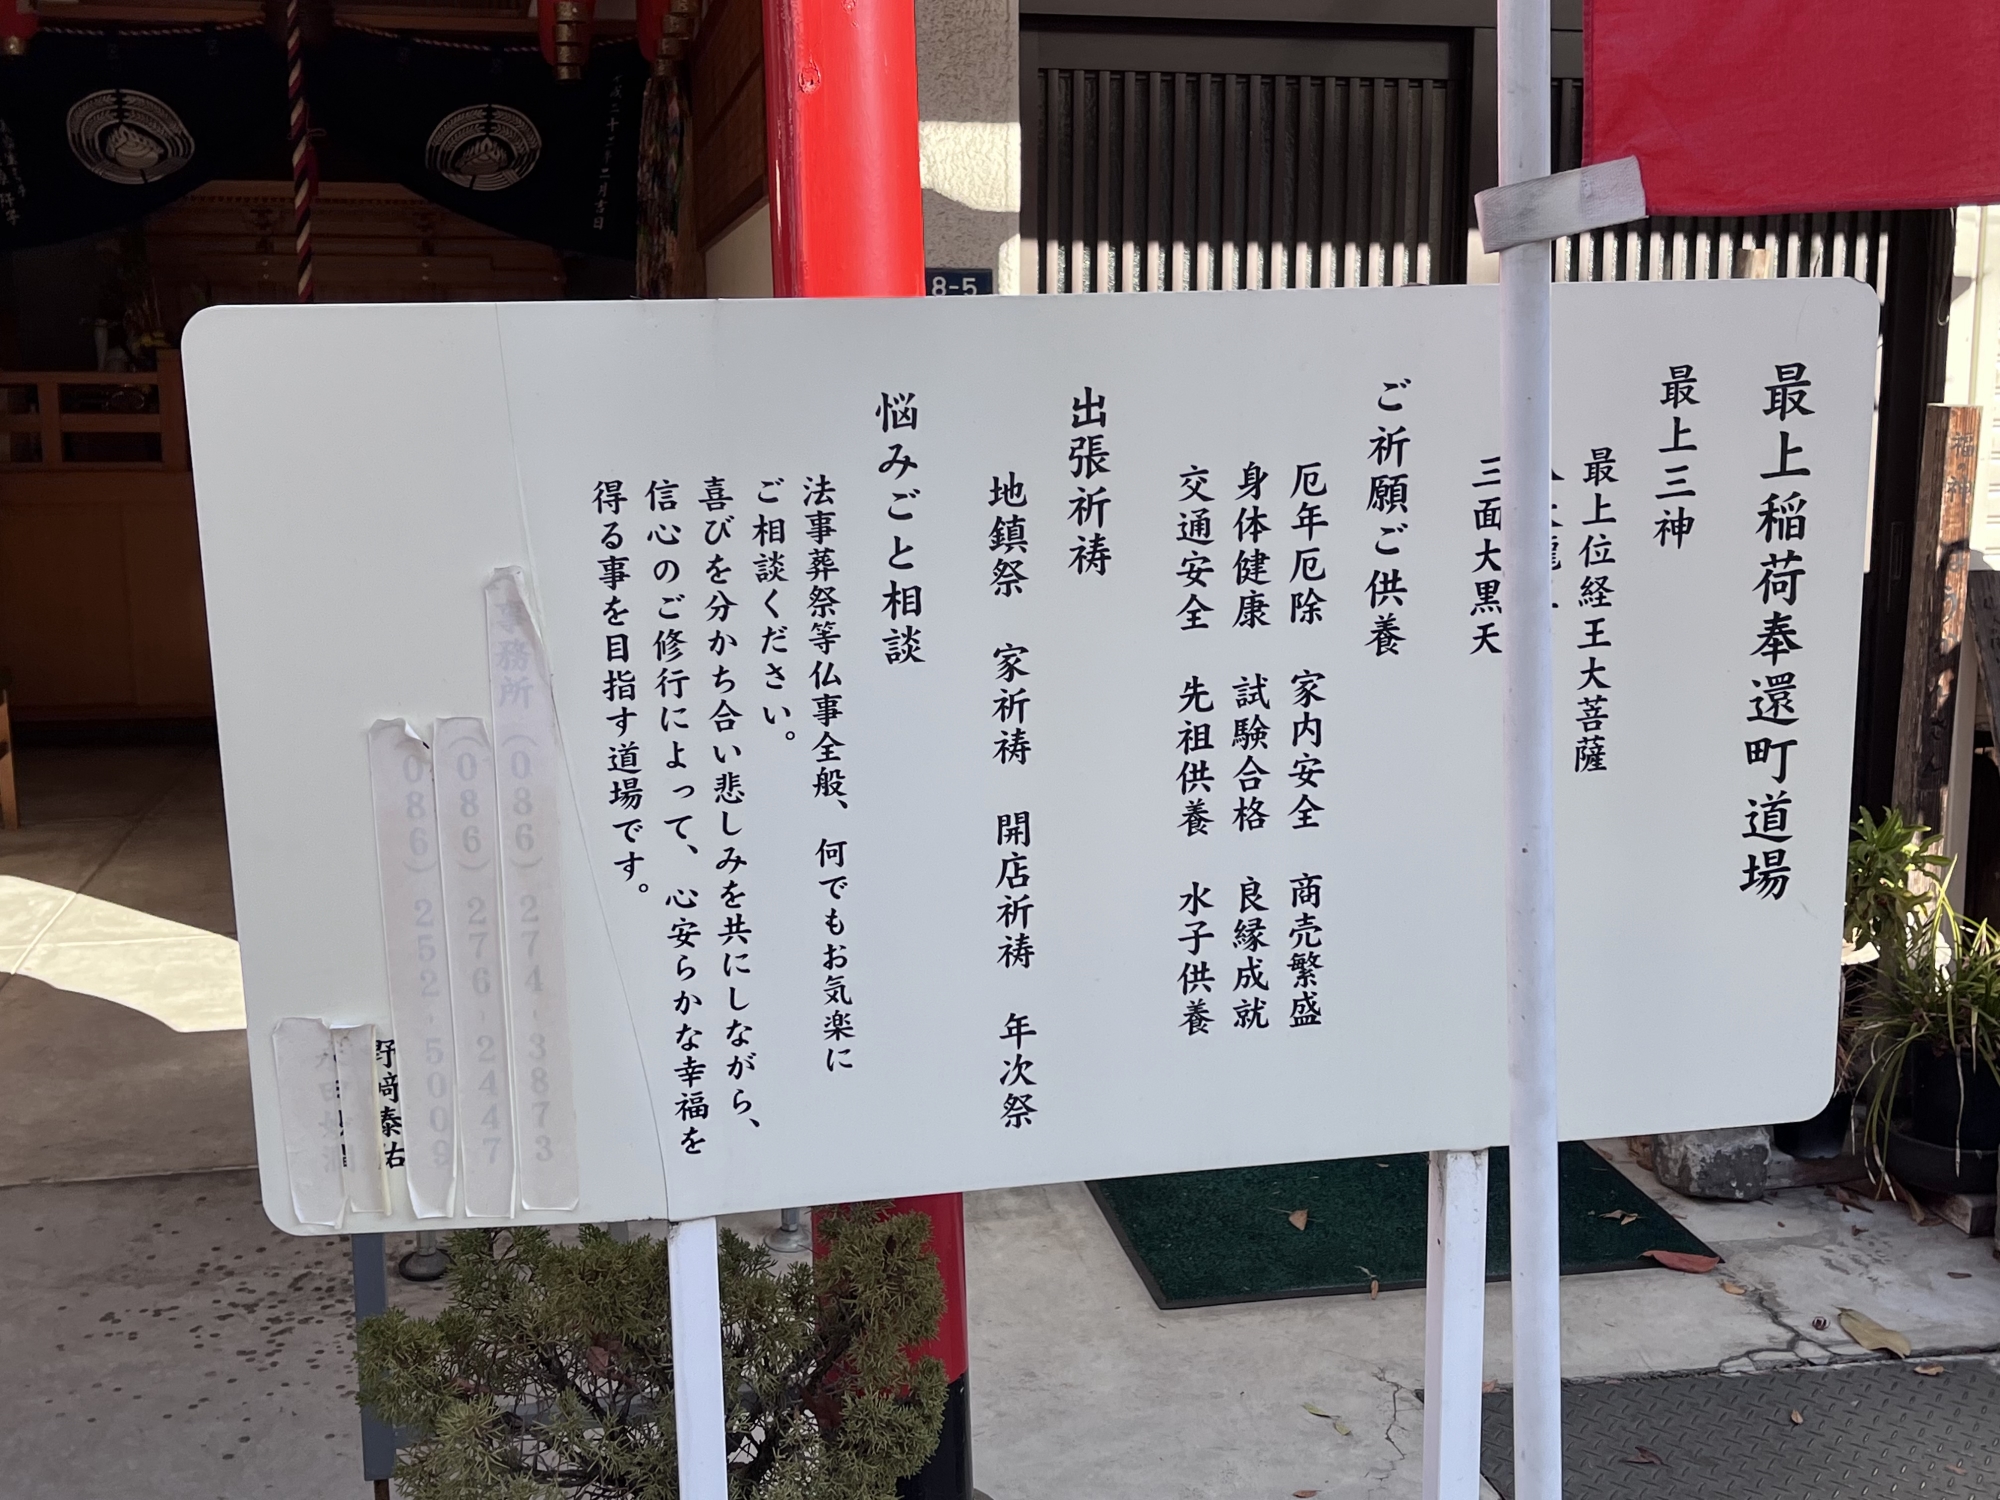 最上稲荷奉還町道場
最上三神
最上位経王大菩薩
三面大黒天
ご祈願ご供養
厄年厄除 家内安全 商売繁盛
身体健康 試験合格 良縁成就
交通安全 先祖供養 水子供養
出張祈祷
地鎮祭 家祈祷 開店祈祷 年次祭
悩みごと相談
法事葬祭等仏事全般、何でもお気楽に
ご相談ください。
喜びを分かち合い悲しみを共にしながら、
信心のご修行によって、心安らかな幸福を
得る事を目指す道場です。
事務所(086)274-3873
(086)276-2447
(086)252-5009
野﨑泰祐
8-5
二月吉日
福の神